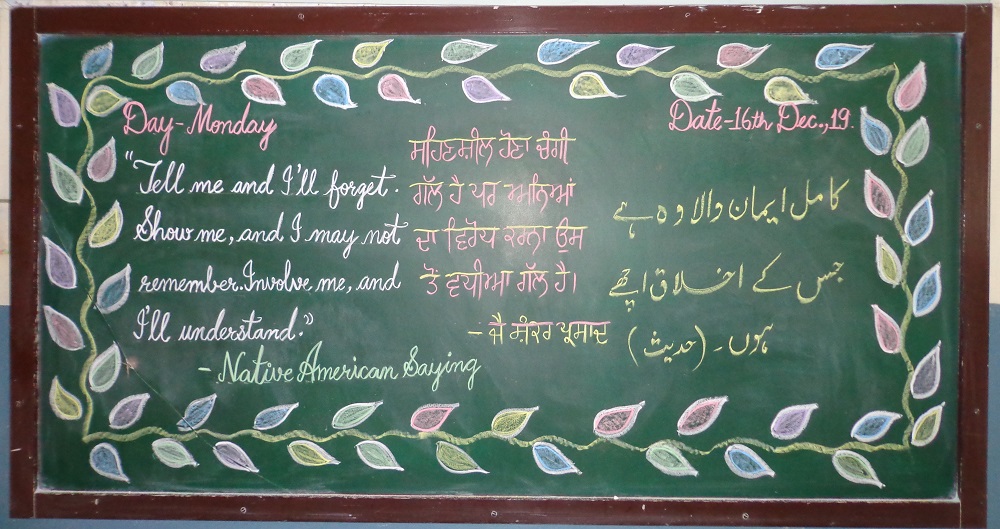 Day-Monday
Date-16th Dec.,19.
"Tell me and I'll forget.
Show me, and I may not
remember. Involve me, and
I'll understand."
- Native American Saying
ਸਹਿਣਸ਼ੀਲ ਹੋਣਾ ਚੰਗੀ
ਗੱਲ ਹੈ ਪਰ ਅਨਿਆਂ
ਦਾ ਵਿਰੋਧ ਕਰਨਾ ਉਸ
ਤੋਂ ਵਧੀਆ ਗੱਲ ਹੈ।
- ਜੈ ਸ਼ੰਕਰ ਪ੍ਰਸਾਦ
کامل ایمان والا وہ ہے
جس کے اخلاق اچھے
ہوں۔ (حدیث)